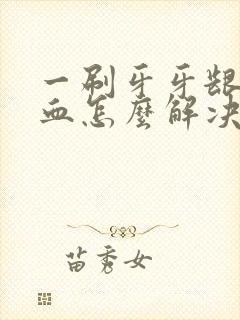 一刷牙牙龈
血怎麽解决
苗秀女